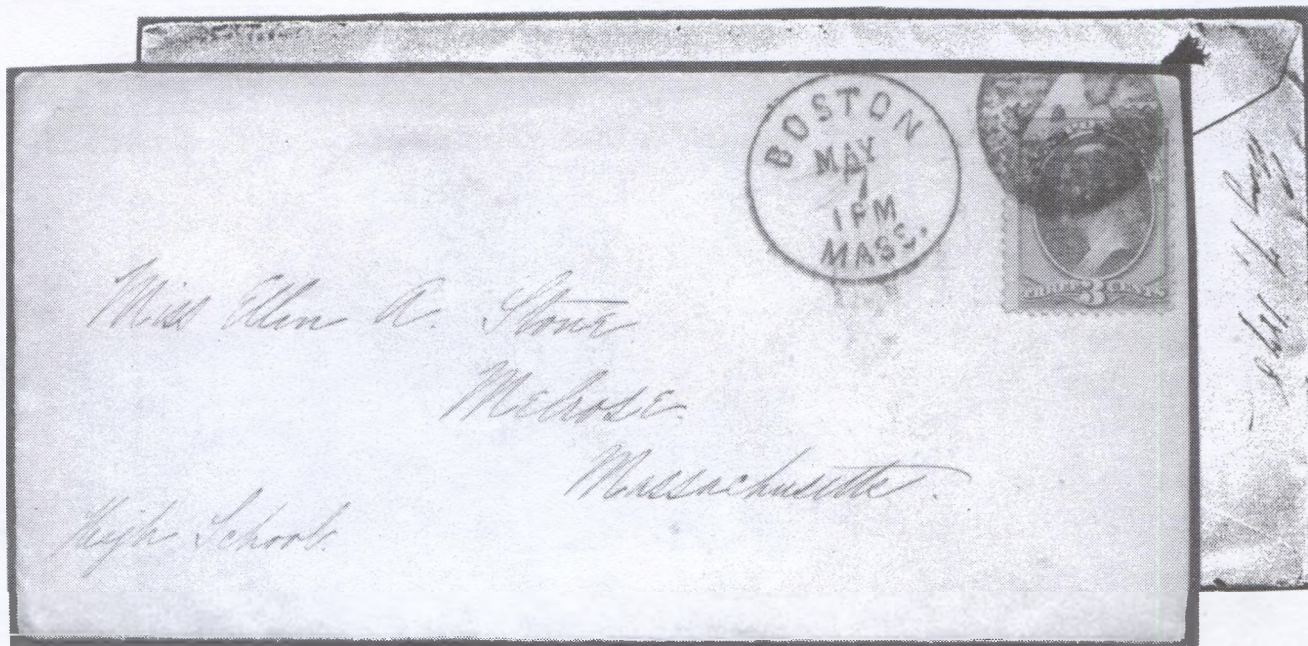 BOSTON
MAY
7
1 PM
MASS.
3
Miss Ellen A. Stone
Melrose.
Massachusetts.
High School.